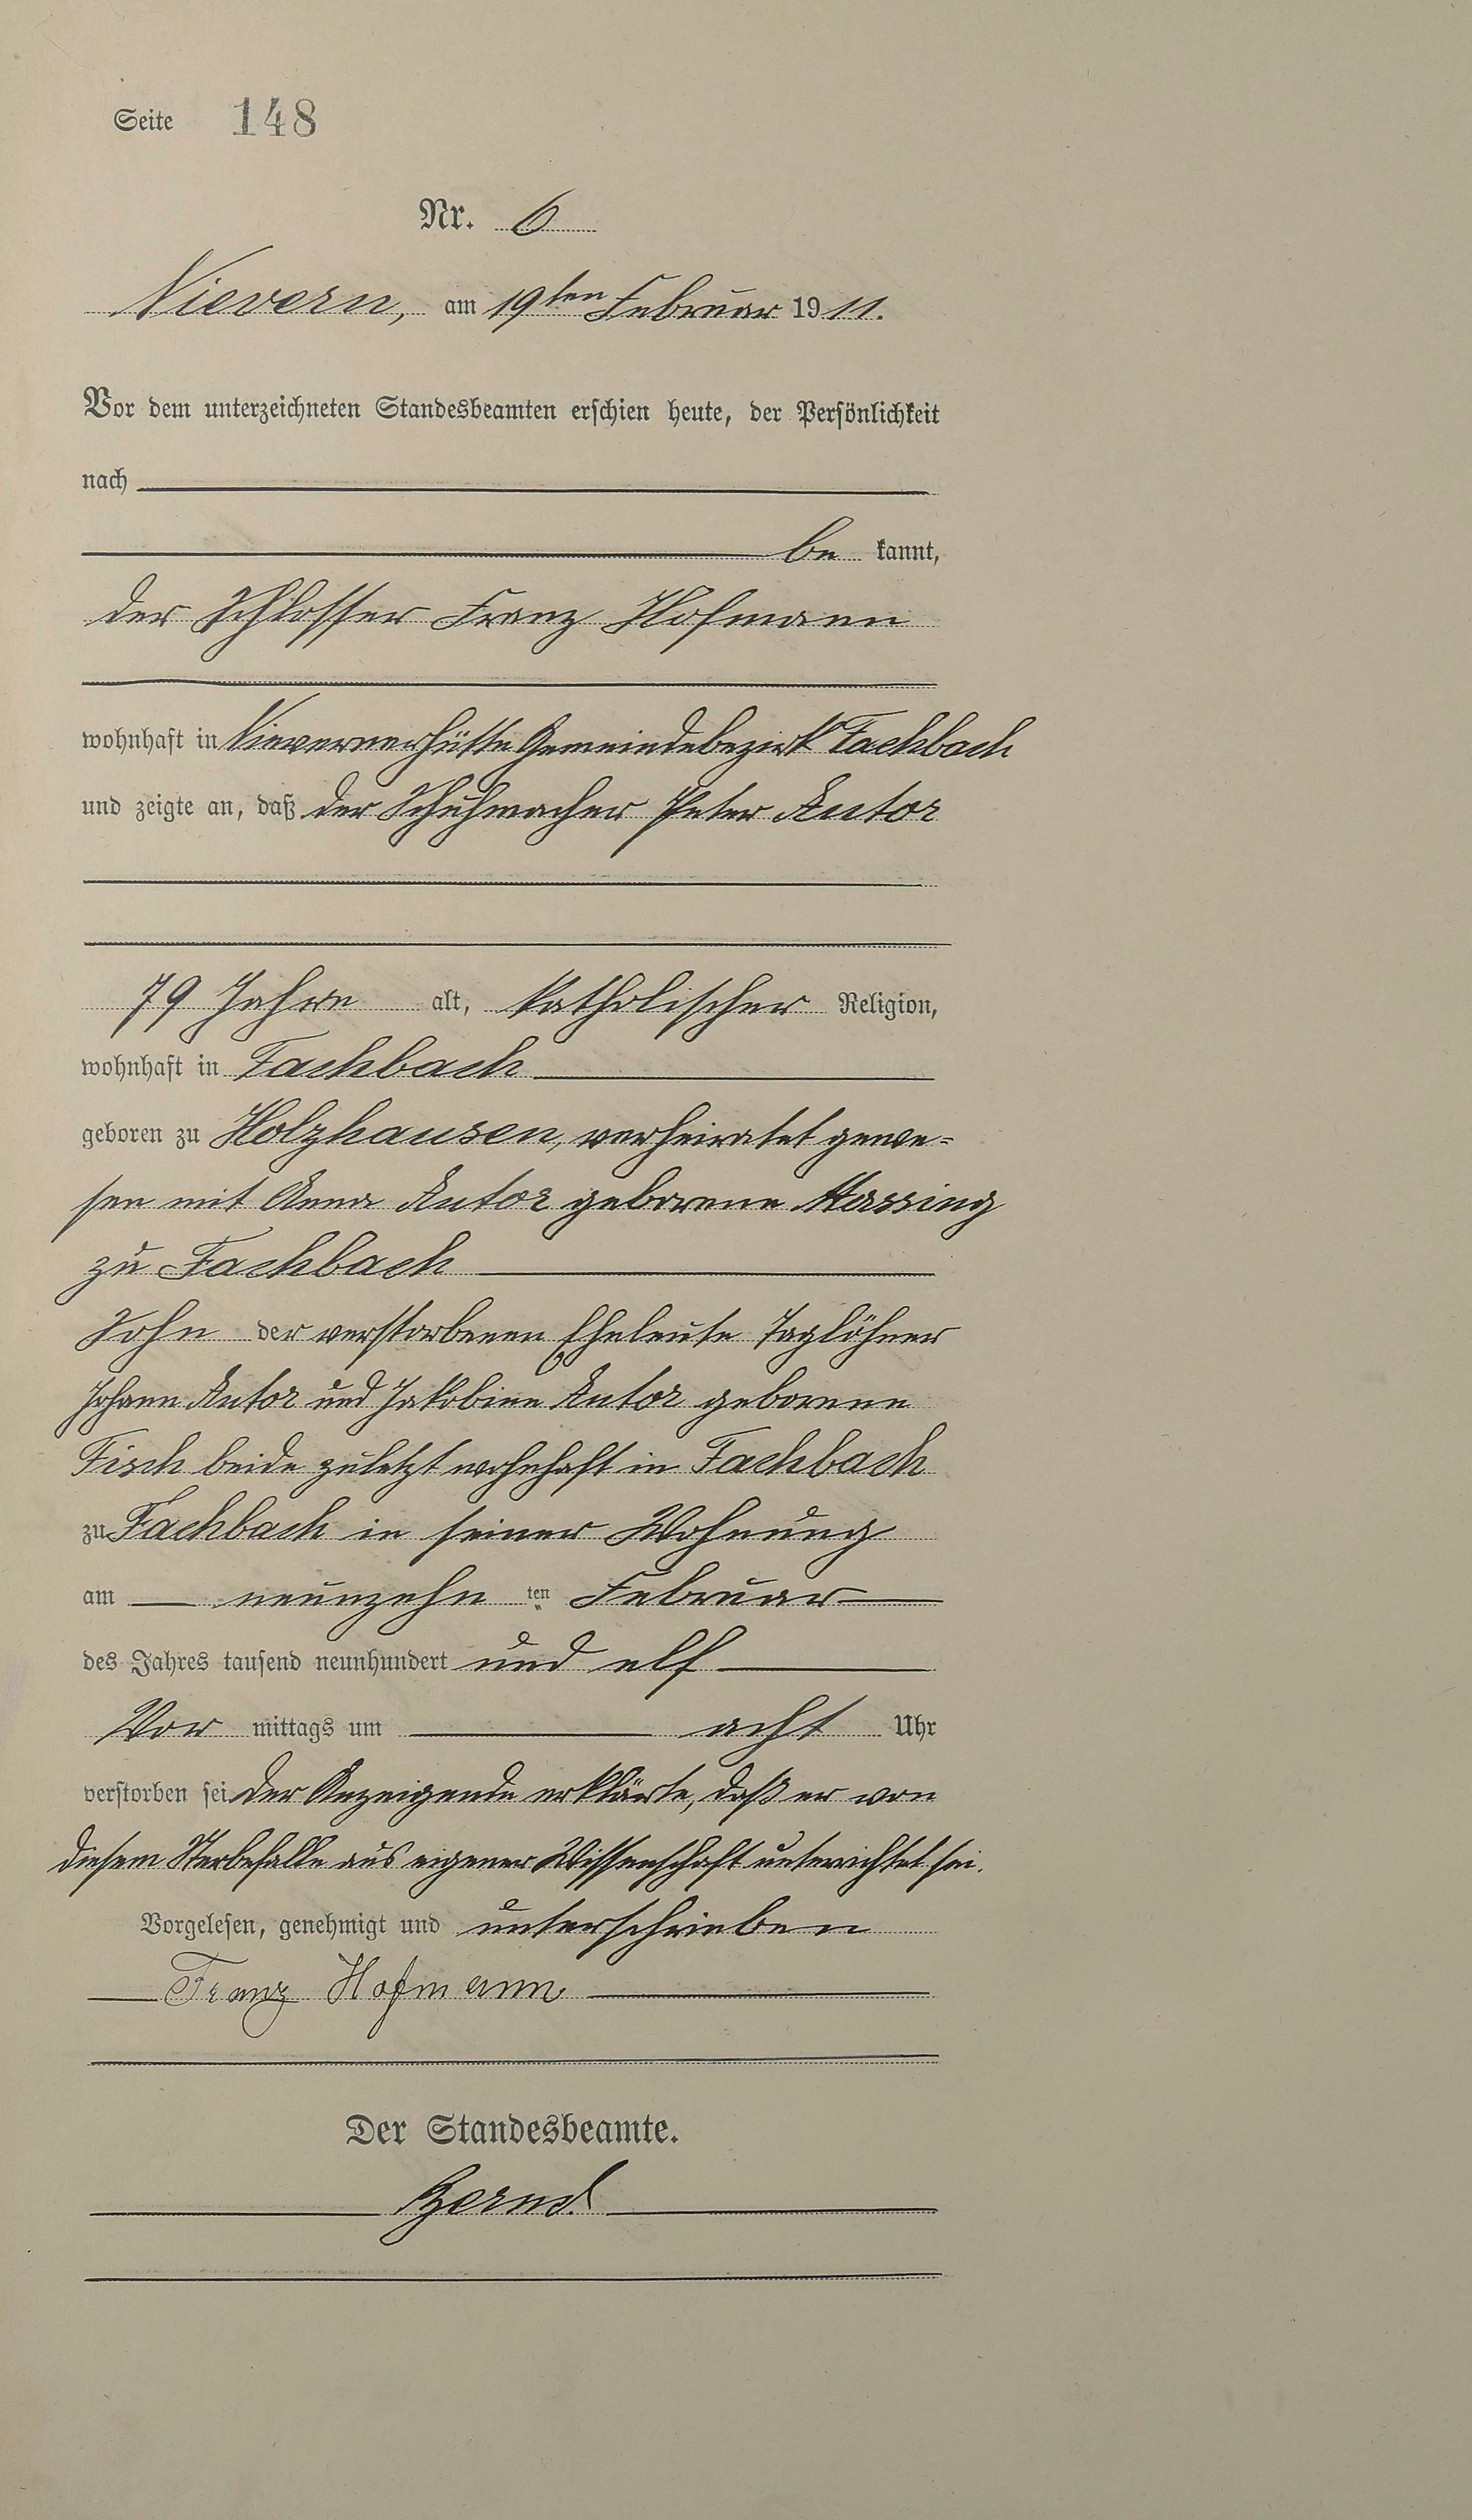 Seite 148
Nr. 6
Nievern, am 19ten Februar 1911.
Vor dem unterzeichneten Standesbeamten erschien heute, der Persönlichkeit
nach
be kannt,
der Schlosser Franz Hofmann
wohnhaft in Nievernerhütte Gemeindebezirk Fachbach
und zeigte an, daß der Schuhmacher Peter Antor
79 Jahre alt, katholischer Religion,
wohnhaft in Fachbach
geboren zu Holzhausen, verheiratet gewe=
sen mit Anna Antor geborene Massing
zu Fachbach
Sohn der verstorbenen Eheleute Taglöhner
Johann Antor und Jakobine Antor geborene
Fisch beide zuletzt wohnhaft in Fachbach
zu Fachbach in seiner Wohnung
am neunzehn ten Februar
des Jahres tausend neunhundert und elf
Vor mittags um acht Uhr
verstorben sei. Der Anzeigende erklärte, daß er von
diesem Sterbefalle aus eigener Wissenschaft unterrichtet sei.
Vorgelesen, genehmigt und unterschrieben
Franz Hofmann
Der Standesbeamte.